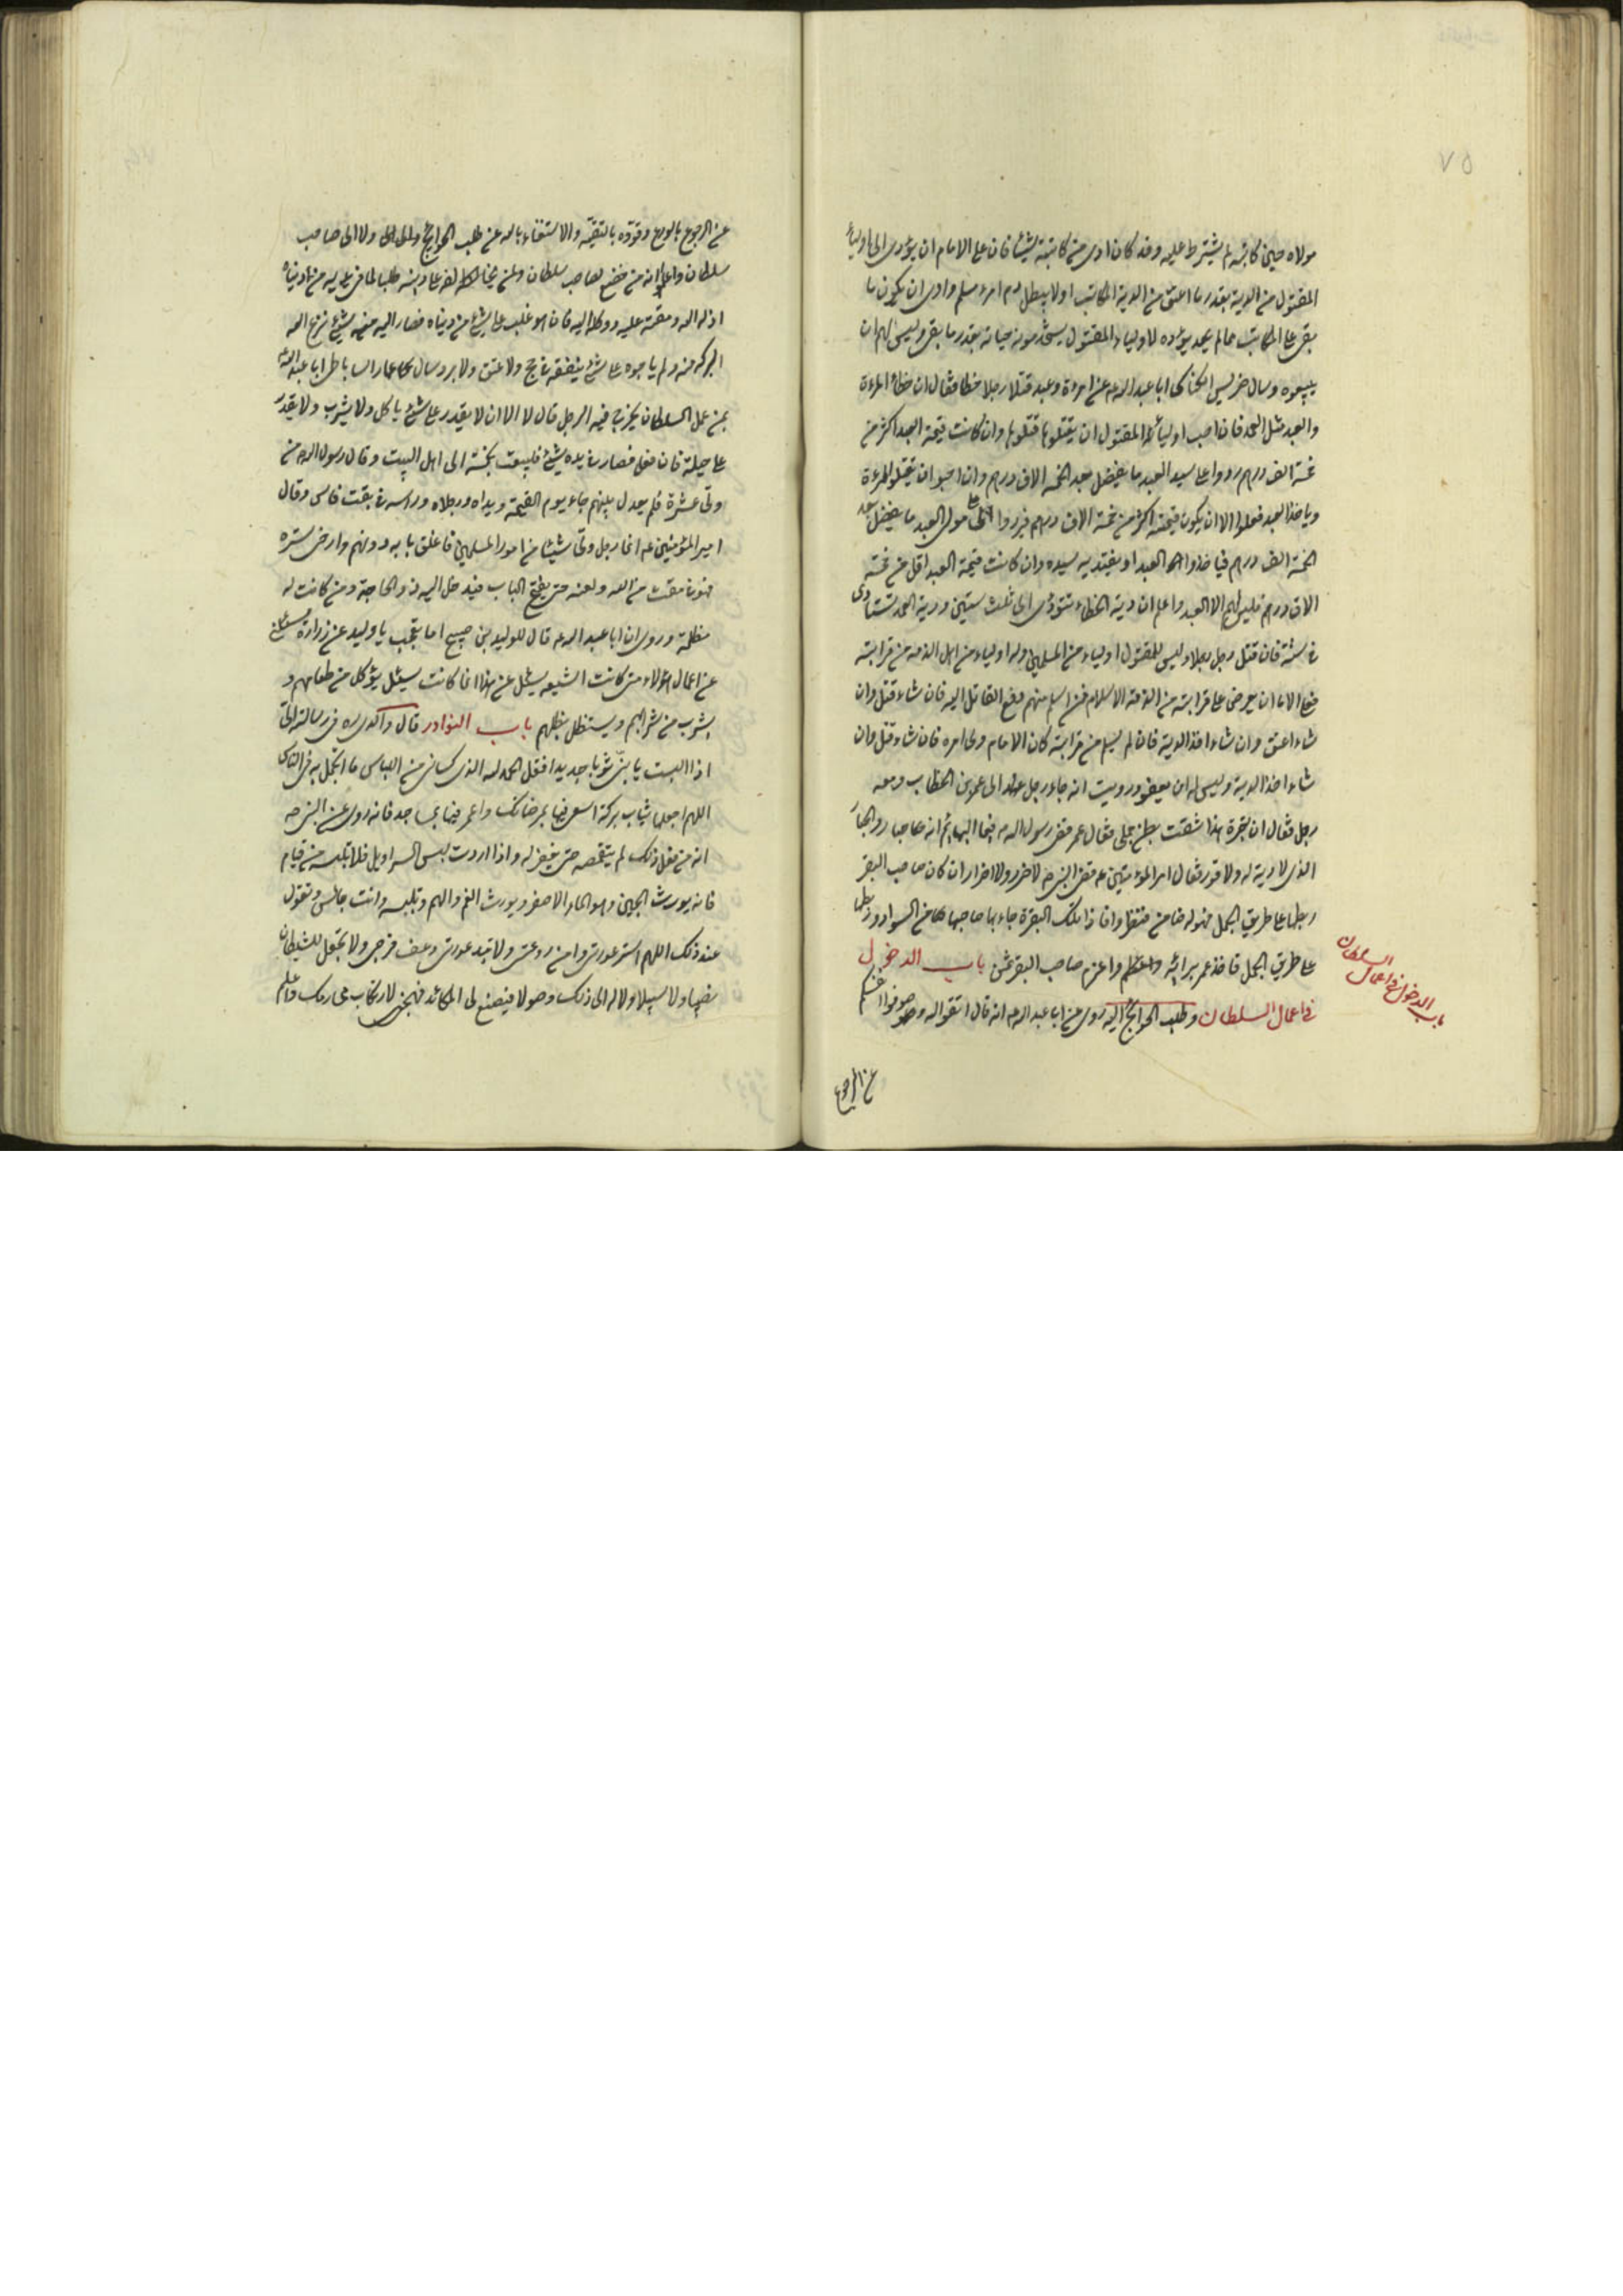 ٧٥
مولاه حين كاتبه لم يشترط عليه وقد كان ادى من كاتبته شيئا فان على الامام ان يؤدى الى اولياء
المقتول من الدية بقدر ما اعتق من الدية المكاتب اولا يبطل دم امرء مسلم وارى ان يكون ما
بقى على المكاتب مما لم يؤده لاولياء المقتول يستخدمونه حياته بقدر ما بقى وليس لهم ان
يبيعوه وسال ضريس الكناسى ابا عبد الله ع عن امرءة وعبد قتلا رجلا خطا فقال ان خطا المرءة
والعبد مثل العمد فان احب اولياء المقتول ان يقتلوهما قتلوهما وان كانت قيمة العبد اكثر من
خمسة الف درهم ردوا على سيد العبد ما يفضل بعد الخمسة الاف درهم وان احبوا ان يقتلوا المرءة
وياخذا العبد فعلوا الا ان يكون قيمته اكثر من خمسة الاف درهم فيردوا على مولى العبد ما يفضل بعد
الخمسة الف درهم فياخذوا العبد او يفتديه سيده وان كانت قيمة العبد اقل من خمسة
الاف درهم فليس لهم الا العبد واعلم ان دية الخطاء تتودى الى ثلث سنين ودية العمد تستادى
فى سنة فان قتل رجل رجلا وليس للمقتول اولياء من المسلمين وله اولياء من اهل الذمة من قرابته
فعلى الامام ان يعرض على قرابته من الذمة الاسلام فمن اسلم منهم دفع القاتل اليه فان شاء قتل وان
شاء اعتق وان شاء اخذ الدية فان لم يسلم من قرابته كان الامام ولى امره فان شاء قتل وان
شاء اخذ الدية وليس له ان يعفو ورويت انه جاء رجل الى عمر بن الخطاب ومعه
رجل فقال ان بقرة هذا شقت بطن جملى فقال عمر قضى رسول الله ص فيما قتل البهايم انه جبار والجبار
الذى لا دية له ولا قود فقال امير المؤمنين ع قضى النبى ص لا ضرر ولا اضرار ان كان صاحب البقر
ربطها على طريق الجمل فهو له ضامن فنظروا فاذا تلك البقرة جاء بها صاحبها من السواد وربطها
على طريق الجمل فاخذ عمر برائه واغرم صاحب البقر ثمن باب الدخول
فى اعمال السلطان وطلب الحوائج اليه روى عن ابا عبد الله ع انه قال اتقوا الله وصونوا انفسكم
باب الدخول فى اعمال السلطان
عن الرجوع
عن الرجوع بالورع وقووه بالتقية والاستغناء بالله عن طلب الحوائج ولا الى صاحب
سلطان واعلم انه من خضع لصاحب سلطان ولمن يخالفه على دينه طلبا لما فى يديه من دنياه
اذله الله ومقته عليه ووكله اليه فان هو غلب على شئ من دنياه فصار اليه منه شئ نزع الله
البركة منه ولم ياجره على شئ ينفقه فى حج ولا عتق ولا بر وسال عمار الساباطى ابا عبد الله ع
عن عمل السلطان يخرج فيه الرجل قال لا الا ان لا يقدر على شئ ياكل ولا يشرب ولا يقدر
على حيلة فان فعل فصار فى يده شئ فليبعث بخمسه الى اهل البيت وقال رسول الله ص من
ولى عشرة فلم يعدل بينهم جاء يوم القيمة ويداه ورجلاه وراسه فى ثقب فاس وقال
امير المؤمنين ع ايما رجل ولى شيئا من امور المسلمين فاغلق بابه دونهم وارخى ستره
فهو فى مقت من الله ولعنه حتى يفتح الباب فيدخل اليه ذو الحاجة ومن كانت له
مظلمة وروى ان ابا عبد الله ع قال للوليد بن صبيح اما تعجب يا وليد عن زرارة يسئلنى
عن اعمال هؤلاء متى كانت الشيعه يسئل عن هذا انما كانت يسئل يؤكل من طعامهم و
يشرب من شرابهم ويستظل بظلهم باب النوادر قال والدى ره فى رسالته الى
اذا لبست يا بنى ثوبا جديدا فقل الحمد لله الذى كسانى من اللباس ما اتجمل به فى الناس
اللهم اجعلها ثياب بركة اسعى فيها بمرضاتك واعمر فيها مساجدك فانه روى عن النبى ص
انه من فعل ذلك لم يتقمصه حتى يغفر له واذا اردت لبس السراويل فلا تلبسه من قيام
فانه يورث الجبن وهو الماء الاصفر ويورث الغم والهم وتلبسه وانت جالس وتقول
عند ذلك اللهم استر عورتى وامن روعتى ولا تبد عورتى وعف فرجى ولا تجعل للشيطان
نصيبا ولا سبيلا ولا له الى ذلك وصولا فيصنع لى المكائد فيهيجنى لارتكاب محارمك واعلم